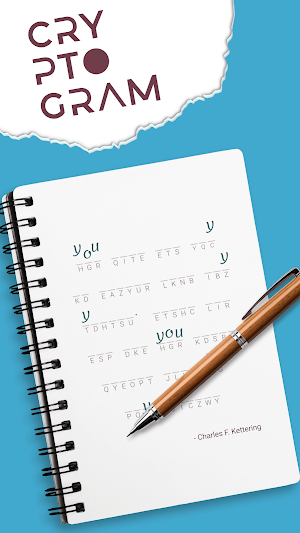 CRY
PTO
GRAM
you y
HGR QITE ETS YQC
y
KD EAZYUR LKNB IBZ
y
TDHTSU. ETSHC L/R
you
ESP DKE HGR KDSEP
QYEOPT
- Charles F. Kettering